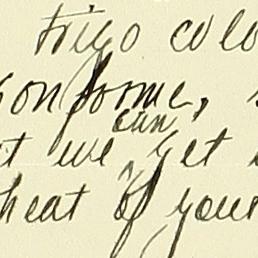 Frigo colo
son forme, s
can
t we get
heat of your